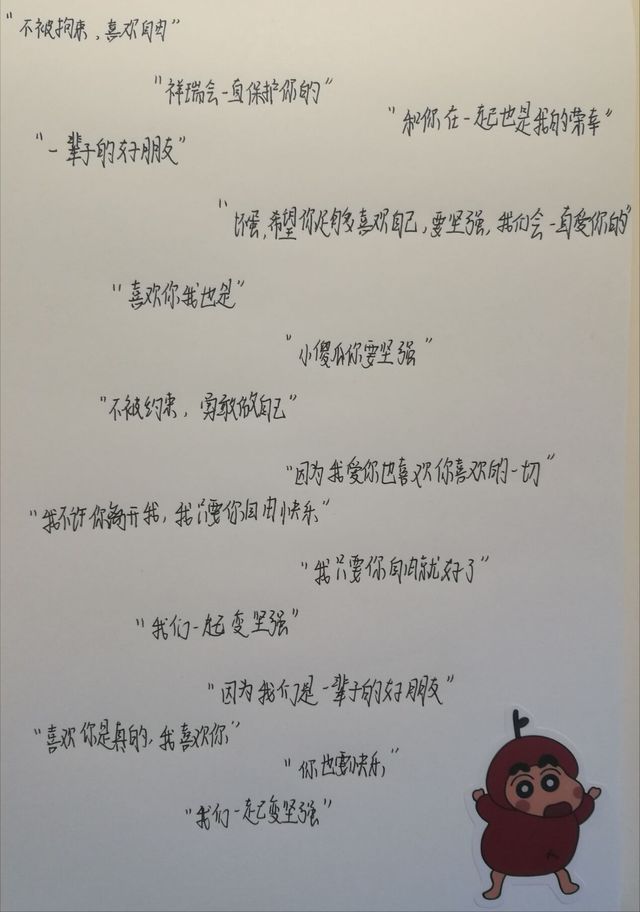 "不被拘束，喜欢自由"
"祥瑞会一直保护你的"
"和你在一起也是我的荣幸"
"一辈子的好朋友"
"坏蛋，希望你足够多喜欢自己，要坚强，我们会一直爱你的"
"喜欢你我也是"
"小傻瓜你要坚强"
"不被约束，勇敢做自己"
"因为我爱你也喜欢你喜欢的一切"
"我不许你离开我，我只要你自由快乐"
"我只要你自由就好了"
"我们一起变坚强"
"因为我们是一辈子的好朋友"
"喜欢你是真的，我喜欢你"
"你也要快乐"
"我们一起变坚强"